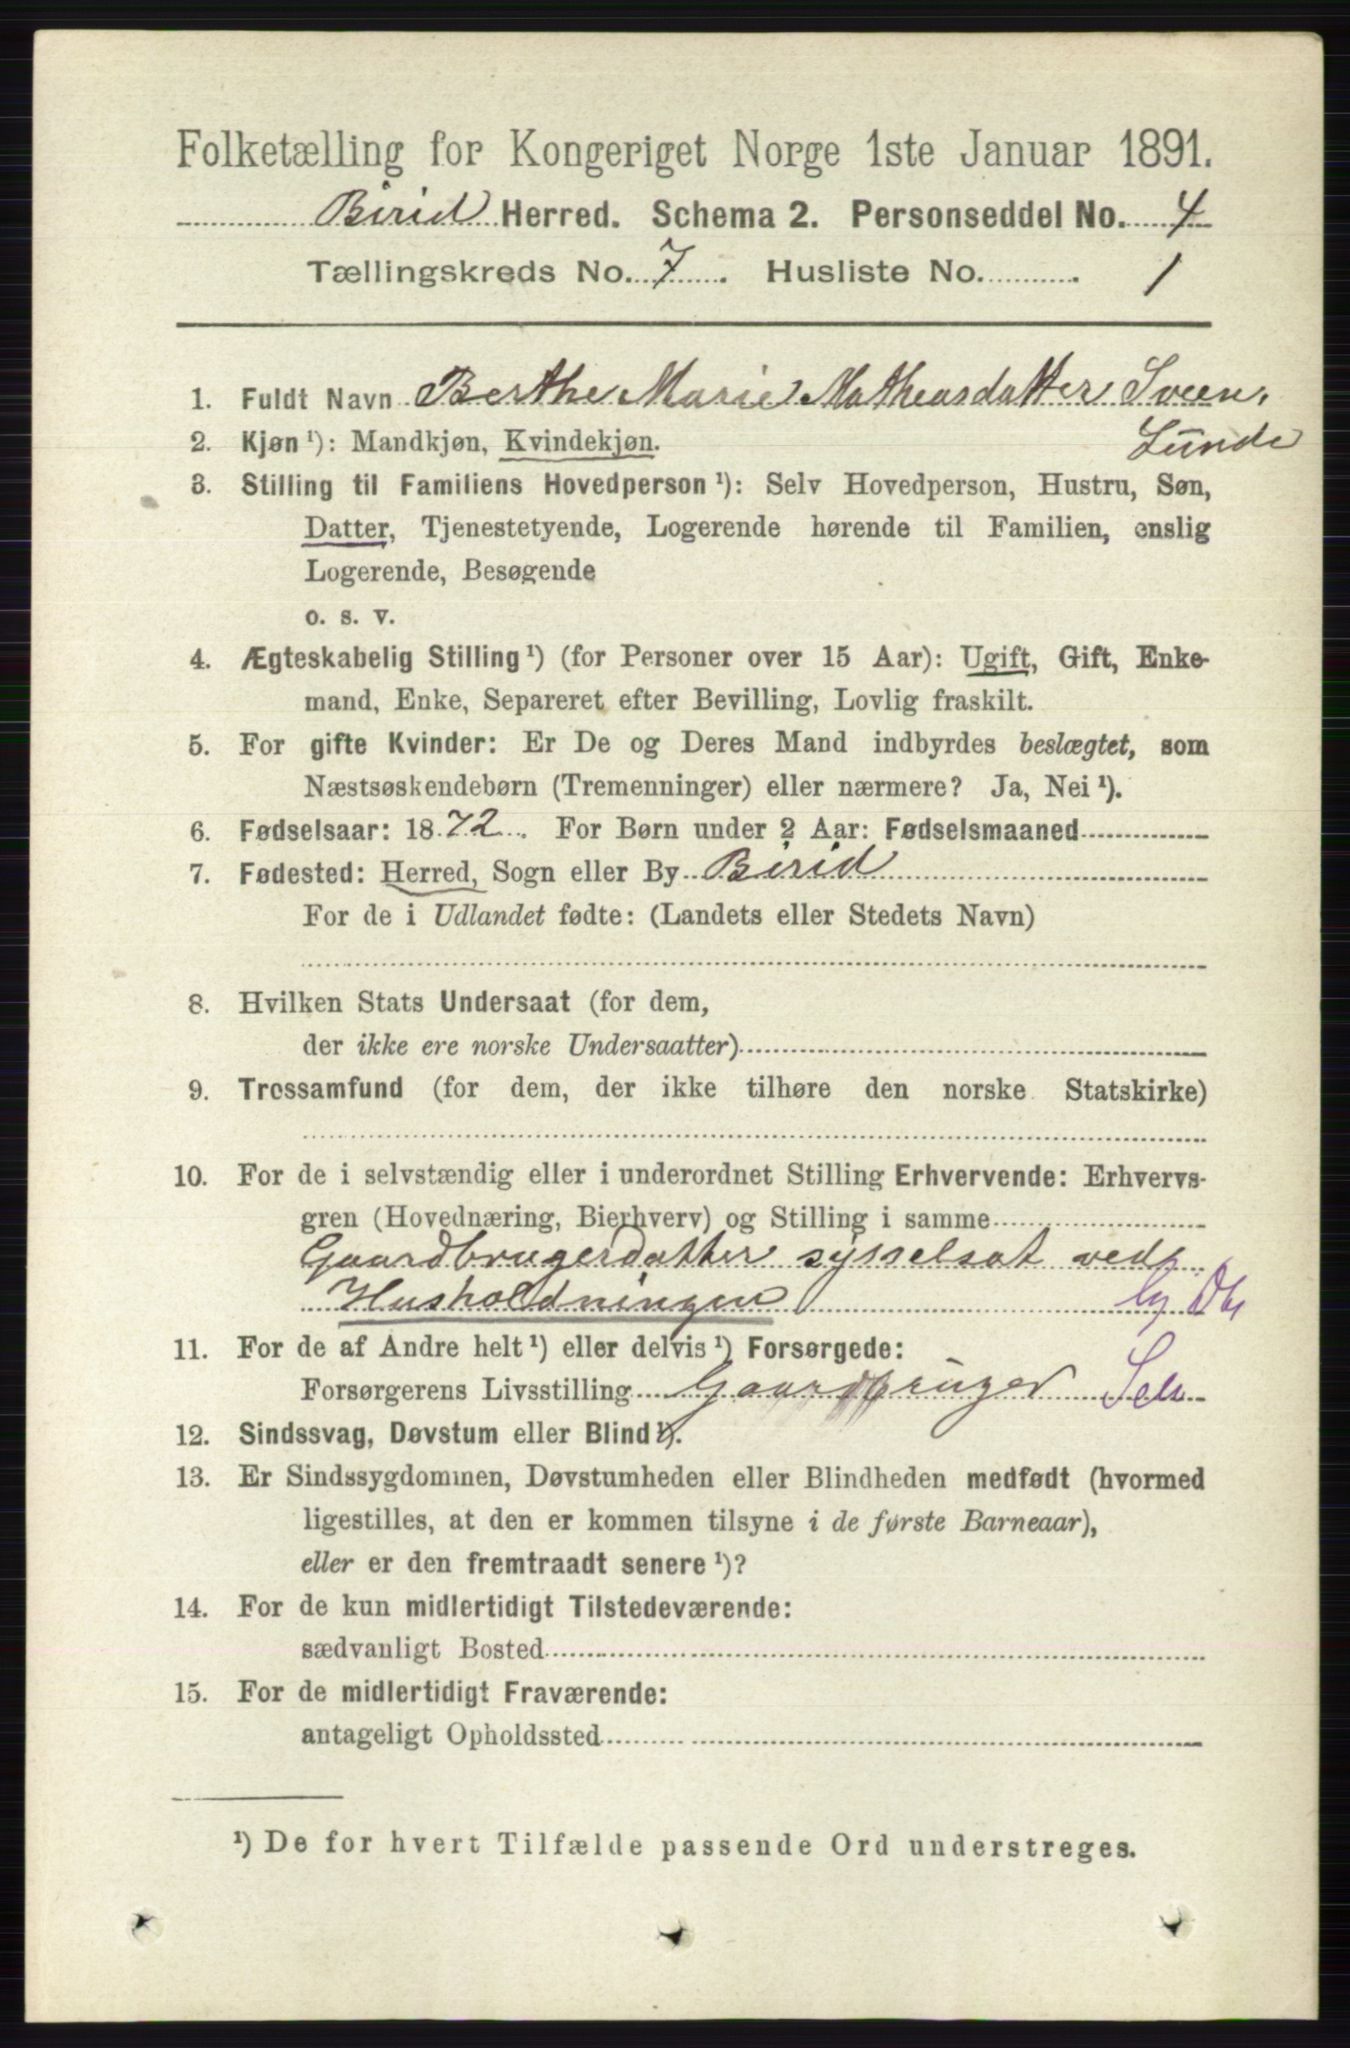 Folketælling for Kongeriget Norge 1ste Januar 1891.
Birid Herred. Schema 2. Personseddel No. 4
Tællingskreds No. 7. Husliste No. 1
1. Fuldt Navn Berthe Marie Matheasdatter Sveen,
Lunde
2. Kjøn ¹): Mandkjøn, Kvindekjøn.
3. Stilling til Familiens Hovedperson ¹): Selv Hovedperson, Hustru, Søn,
Datter, Tjenestetyende, Logerende hørende til Familien, enslig
Logerende, Besøgende
o. s. v.
4. Ægteskabelig Stilling ¹) (for Personer over 15 Aar): Ugift, Gift, Enke-
mand, Enke, Separeret efter Bevilling, Lovlig fraskilt.
5. For gifte Kvinder: Er De og Deres Mand indbyrdes beslægtet, som
Næstsøskendebørn (Tremenninger) eller nærmere? Ja, Nei ¹).
6. Fødselsaar: 1872. For Børn under 2 Aar: Fødselsmaaned
7. Fødested: Herred, Sogn eller By Birid
For de i Udlandet fødte: (Landets eller Stedets Navn)
8. Hvilken Stats Undersaat (for dem,
der ikke ere norske Undersaatter)
9. Trossamfund (for dem, der ikke tilhøre den norske Statskirke)
10. For de i selvstændig eller i underordnet Stilling Erhvervende: Erhvervs-
gren (Hovednæring, Bierhverv) og Stilling i samme
Gaardbrugerdatter sysselsat ved
Husholdningen
11. For de af Andre helt ¹) eller delvis ¹) Forsørgede:
Forsørgerens Livsstilling Gaardbruger
12. Sindssvag, Døvstum eller Blind ¹).
13. Er Sindssygdommen, Døvstumheden eller Blindheden medfødt (hvormed
ligestilles, at den er kommen tilsyne i de første Barneaar),
eller er den fremtraadt senere ¹)?
14. For de kun midlertidigt Tilstedeværende:
sædvanligt Bosted
15. For de midlertidigt Fraværende:
antageligt Opholdssted
¹) De for hvert Tilfælde passende Ord understreges.